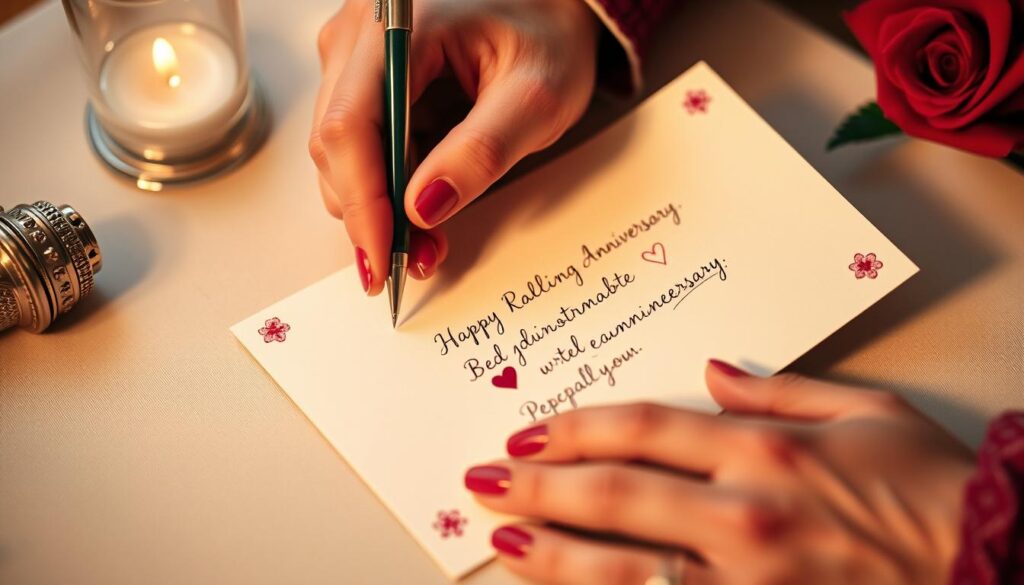 Happy Ralling Anniversary.
Bed jduinotrnabte
wtel eaumnineersary:
Pepepallyoun.